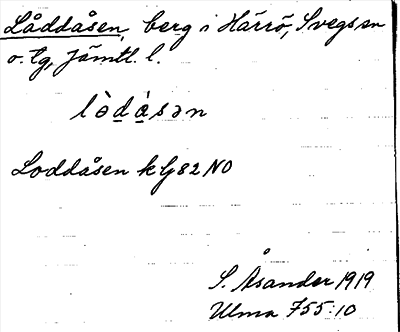 Låddåsen, berg i Härrö, Svegs sn
o. tg, Jämtl. l.
lòdàsən
Loddåsen kbg 82 NO
S. Åsander 1919
Ulma 755:10